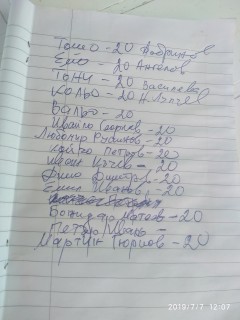 Тошо - 20 Добринов
Ейо - 20 Ангелов
Тони - 20 Василева
Кольо - 20 Н. Лунгов
Вальо - 20
Ивайло Георгиев - 20
Любомир Русинов - 20
Кайчо Петров - 20
Иван Цучев - 20
Димо Димитров - 20
Емил Иванов - 20
Божидар Матеев - 20
Петьо Иванов -
Мартин Гюров - 20
2019/7/7 12:07